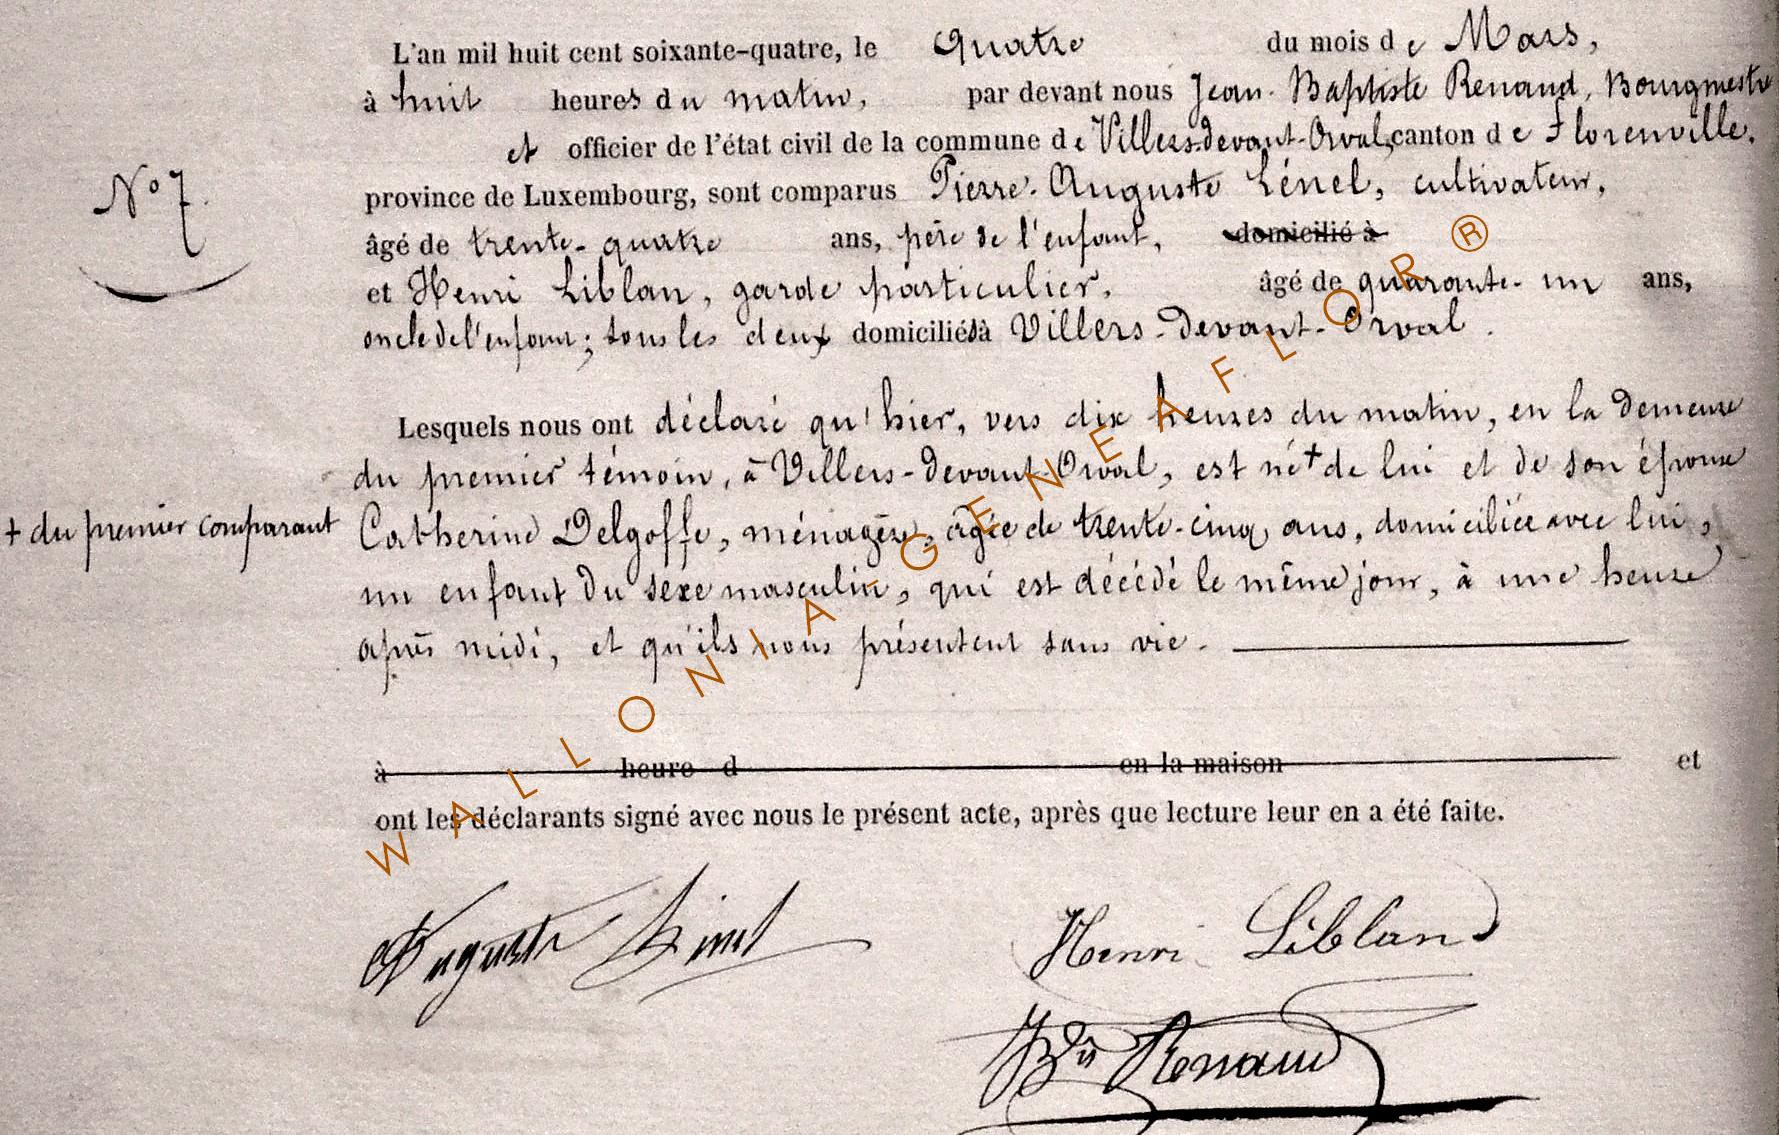 L'an mil huit cent soixante-quatre, le Quatre du mois de Mars,
à huit heures du matin, par devant nous Jean-Baptiste Renaud, Bourgmestre
et officier de l'état civil de la commune de Villers-devant-Orval, canton de Florenville,
province de Luxembourg, sont comparus Pierre-Auguste Lénel, cultivateur,
N° 7.
âgé de trente-quatre ans, père de l'enfant, domicilié à
et Henri Liblan, garde particulier, âgé de quarante-un ans,
oncle de l'enfant; tous les deux domiciliés à Villers-devant-Orval.
Lesquels nous ont déclaré qu'hier, vers dix heures du matin, en la demeure
du premier témoin, à Villers-devant-Orval, est né + de lui et de son épouse
+ du premier comparant
Catherine Delgoffe, ménagère, âgée de trente-cinq ans, domiciliée avec lui,
un enfant du sexe masculin, qui est décédé le même jour, à une heure
après midi, et qu'ils nous présentent sans vie.
à heure d en la maison et
ont les déclarants signé avec nous le présent acte, après que lecture leur en a été faite.
Auguste Linel Henri Liblan
JBte Renaud
WALLONIA-GENEAFLOR®